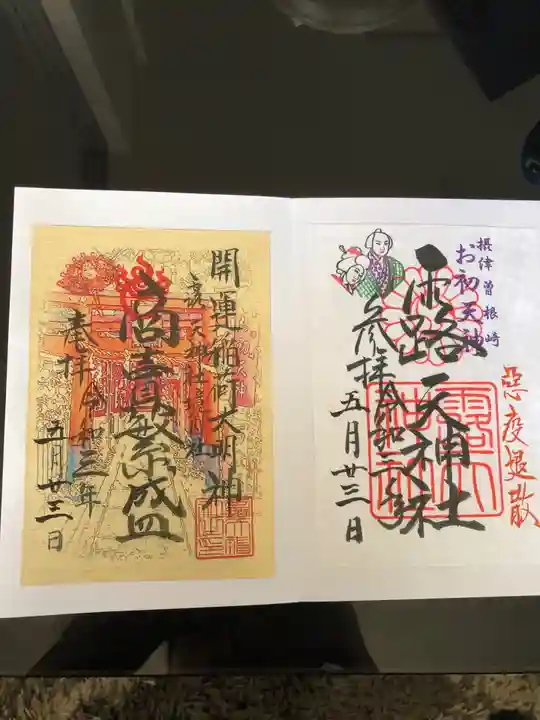 摂津曽根崎
お初天神
悪疫退散
露天神社
参拝 令和三年
五月廿三日
開運稲荷大明神
露天神社境内社
商売繁盛
奉拝 令和三年
五月廿三日